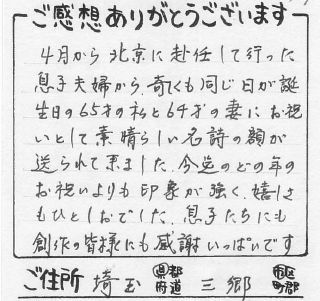 ご感想ありがとうございます
4月から北京に赴任して行った
息子夫婦から、奇くも同じ日が誕
生日の65才の私と64才の妻にお祝
いとして素晴らしい名詩の額が
送られて来ました。今迄のどの年の
お祝いよりも印象が強く、嬉しさ
もひとしおでした。息子たちにも
創作の皆様にも感謝いっぱいです
ご住所 埼玉 都道府県 三郷 市区町郡